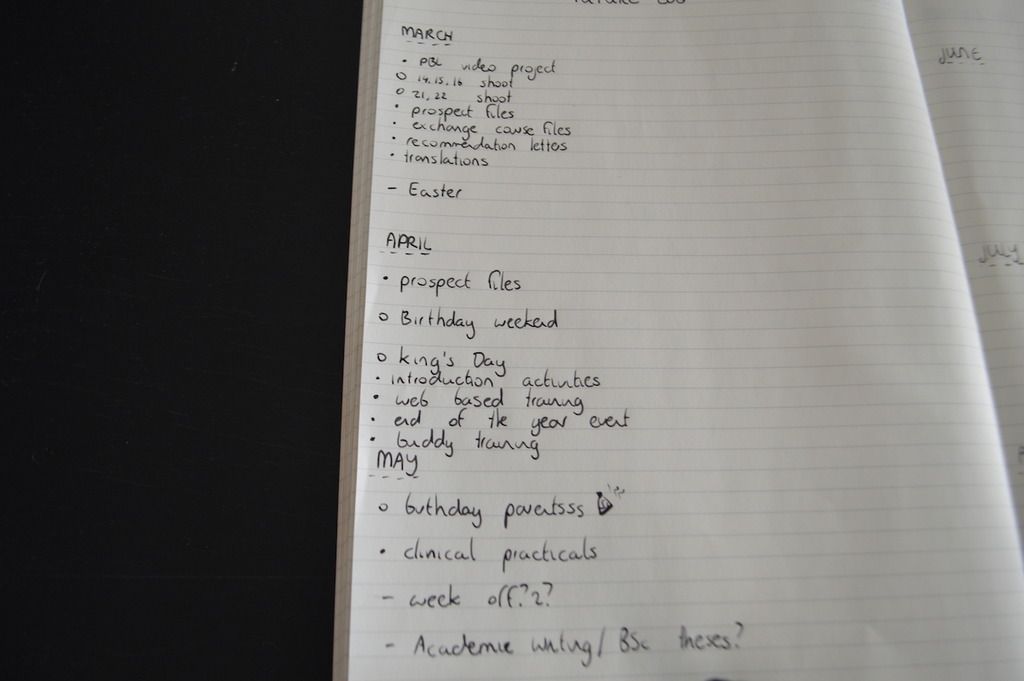 FUTURE LOG
MARCH
• PBL video project
o 14, 15, 16 shoot
o 21, 22 shoot
• prospect files
• exchange course files
• recommendation letters
• translations
- Easter
APRIL
• prospect files
o Birthday weekend
o King's Day
• introduction activities
• web based training
• end of the year event
• buddy training
MAY
o birthday parentsss
• clinical practicals
- week off?2?
- Academic writing/ BSc theses?
JUNE
JULY